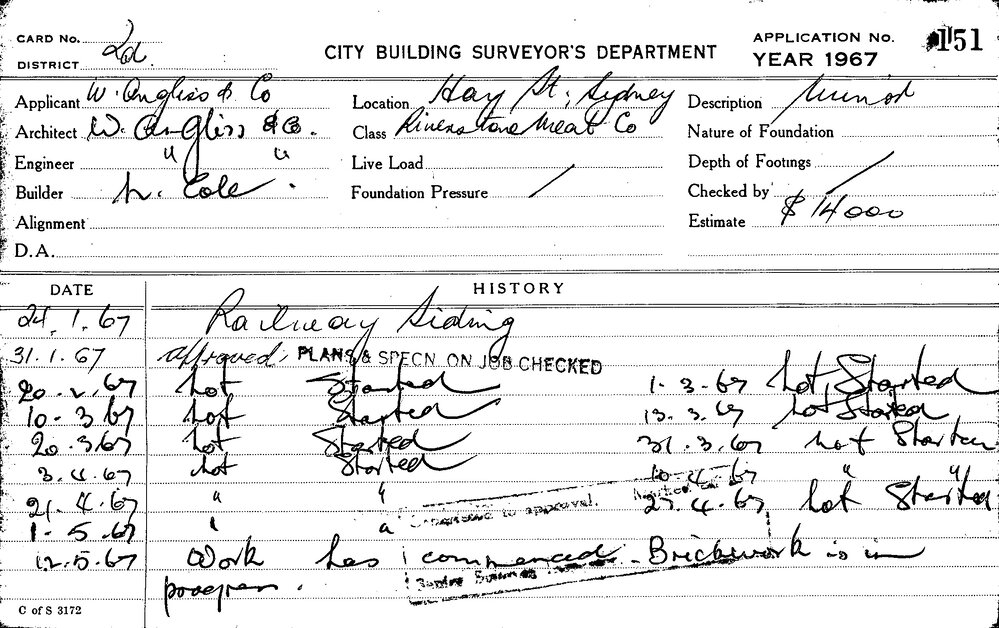 CARD No. 2d CITY BUILDING SURVEYOR'S DEPARTMENT APPLICATION No. 151
DISTRICT YEAR 1967
Applicant W. Angliss & Co Location Hay St, Sydney Description Minor
Architect W. Angliss & Co. Class Riverstone Meat Co Nature of Foundation
Engineer " " Live Load Depth of Footings /
Builder N. Cole. Foundation Pressure / Checked by
Alignment Estimate $14000
D.A.
DATE HISTORY
24.1.67 Railway Siding
31.1.67 approved. PLANS & SPECN. ON JOB CHECKED
20.2.67 Not Started 1.3.67 Not Started
10.3.67 Not Started 13.3.67 Not Started
20.3.67 Not Started 31.3.67 Not Started
3.4.67 Not Started 10.4.67 " "
21.4.67 " " 27.4.67 Not Started
to approval.
1.5.67 " "
12.5.67 Work has commenced. Brickwork is in
progress.
C of S 3172